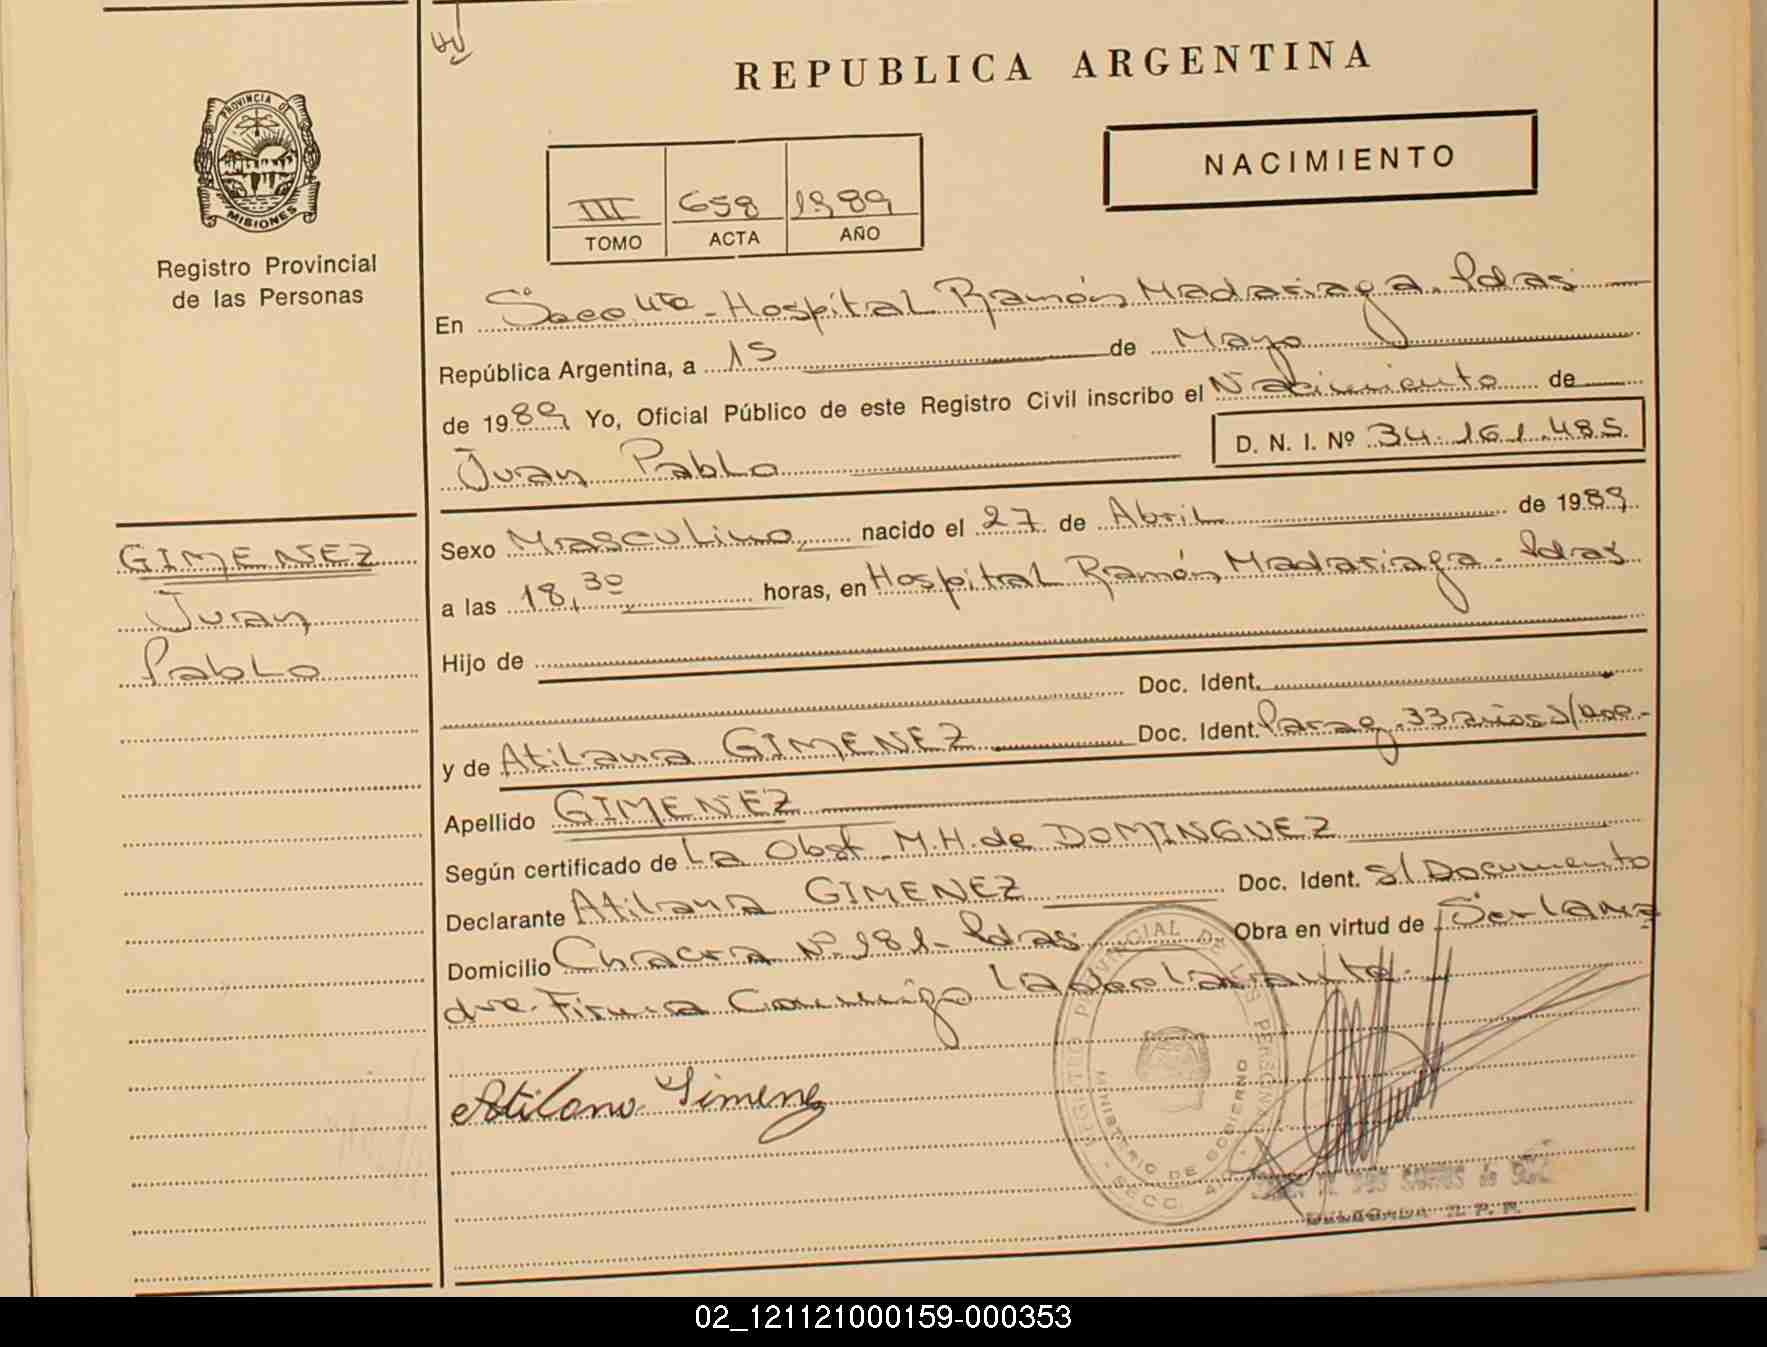 REPUBLICA ARGENTINA
PROVINCIA DE
MISIONES
Registro Provincial
de las Personas
NACIMIENTO
III 658 1989
TOMO ACTA AÑO
En Secc 4ta - Hospital Ramón Madariaga. Pdas
República Argentina, a 15 de Mayo
de 1989 Yo, Oficial Público de este Registro Civil inscribo el Nacimiento de
Juan Pablo D. N. I. Nº 34.161.485
GIMENEZ
Juan
Pablo
Sexo Masculino nacido el 27 de Abril de 1989
a las 18,30 horas, en Hospital Ramón Madariaga - Pdas
Hijo de
Doc. Ident.
y de Atilana GIMENEZ Doc. Ident. Parag. 33 años s/Doc.-
Apellido GIMENEZ
Según certificado de La Obst. M.H. de DOMINGUEZ
Declarante Atilana GIMENEZ Doc. Ident. s/ Documento
Domicilio Chacra Nº 181 - Pdas Obra en virtud de Ser la ma
dre. Firma Conmigo la declarante.
Atilana Gimenez
REGISTRO PROVINCIAL DE LAS PERSONAS
MINISTERIO DE GOBIERNO
SECC. 4
DOS SANTOS de
DELEGADA R. P. P.
02_121121000159-000353